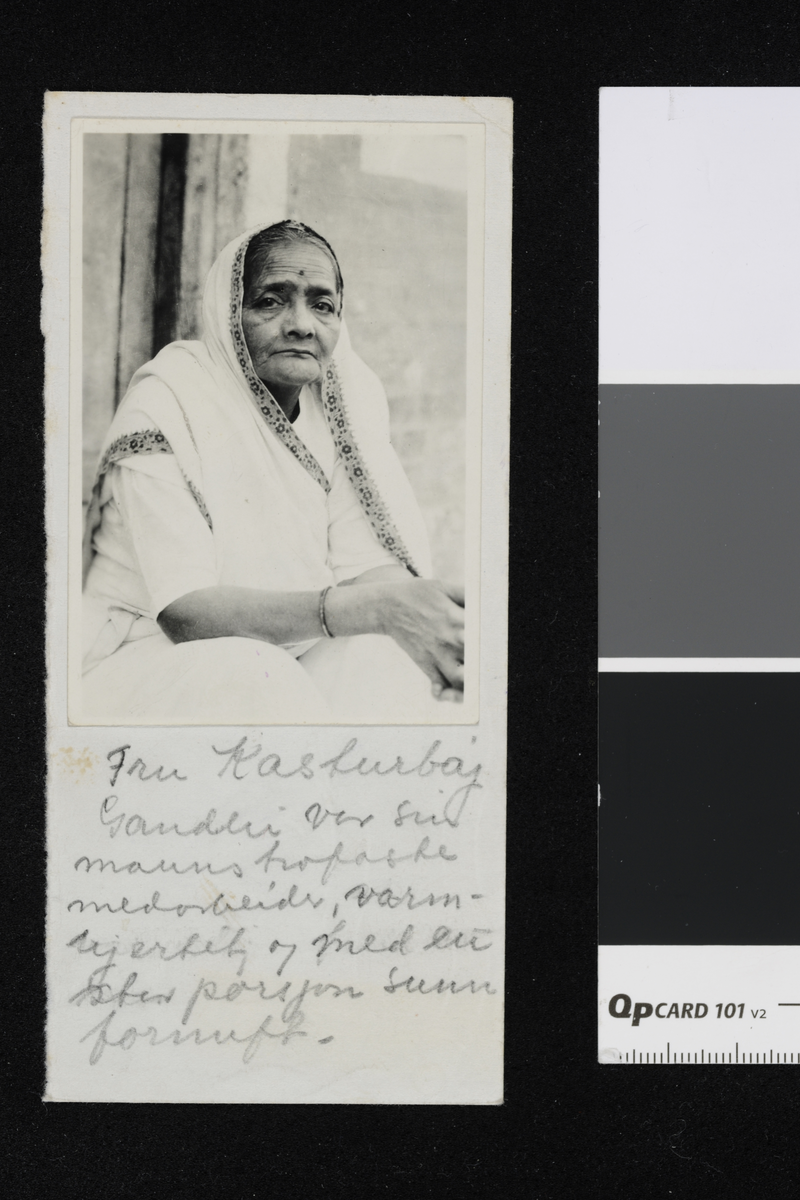 Fru Kasturbaj
Gandhi var sin
manns trofaste
medarbeider, varm-
hjertet og med en
stor porsjon sunn
fornuft.
QpCARD 101 v2